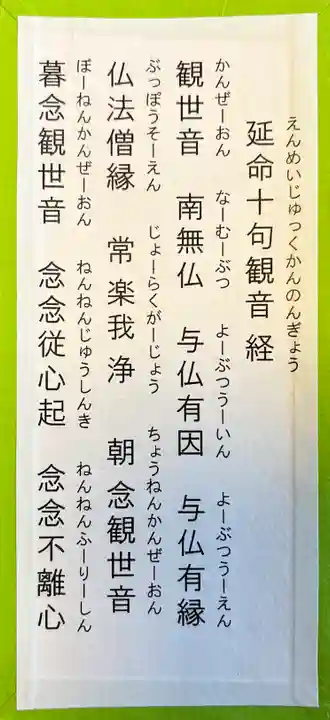 えんめいじゅっくかんのんぎょう
延命十句観音経
かんぜーおん なーむーぶつ よーぶつうーいん よーぶつうーえん
観世音 南無仏 与仏有因 与仏有縁
ぶっぽうそーえん じょーらくがーじょう ちょうねんかんぜーおん
仏法僧縁 常楽我浄 朝念観世音
ぼーねんかんぜーおん ねんねんじゅうしんき ねんねんふーりーしん
暮念観世音 念念従心起 念念不離心